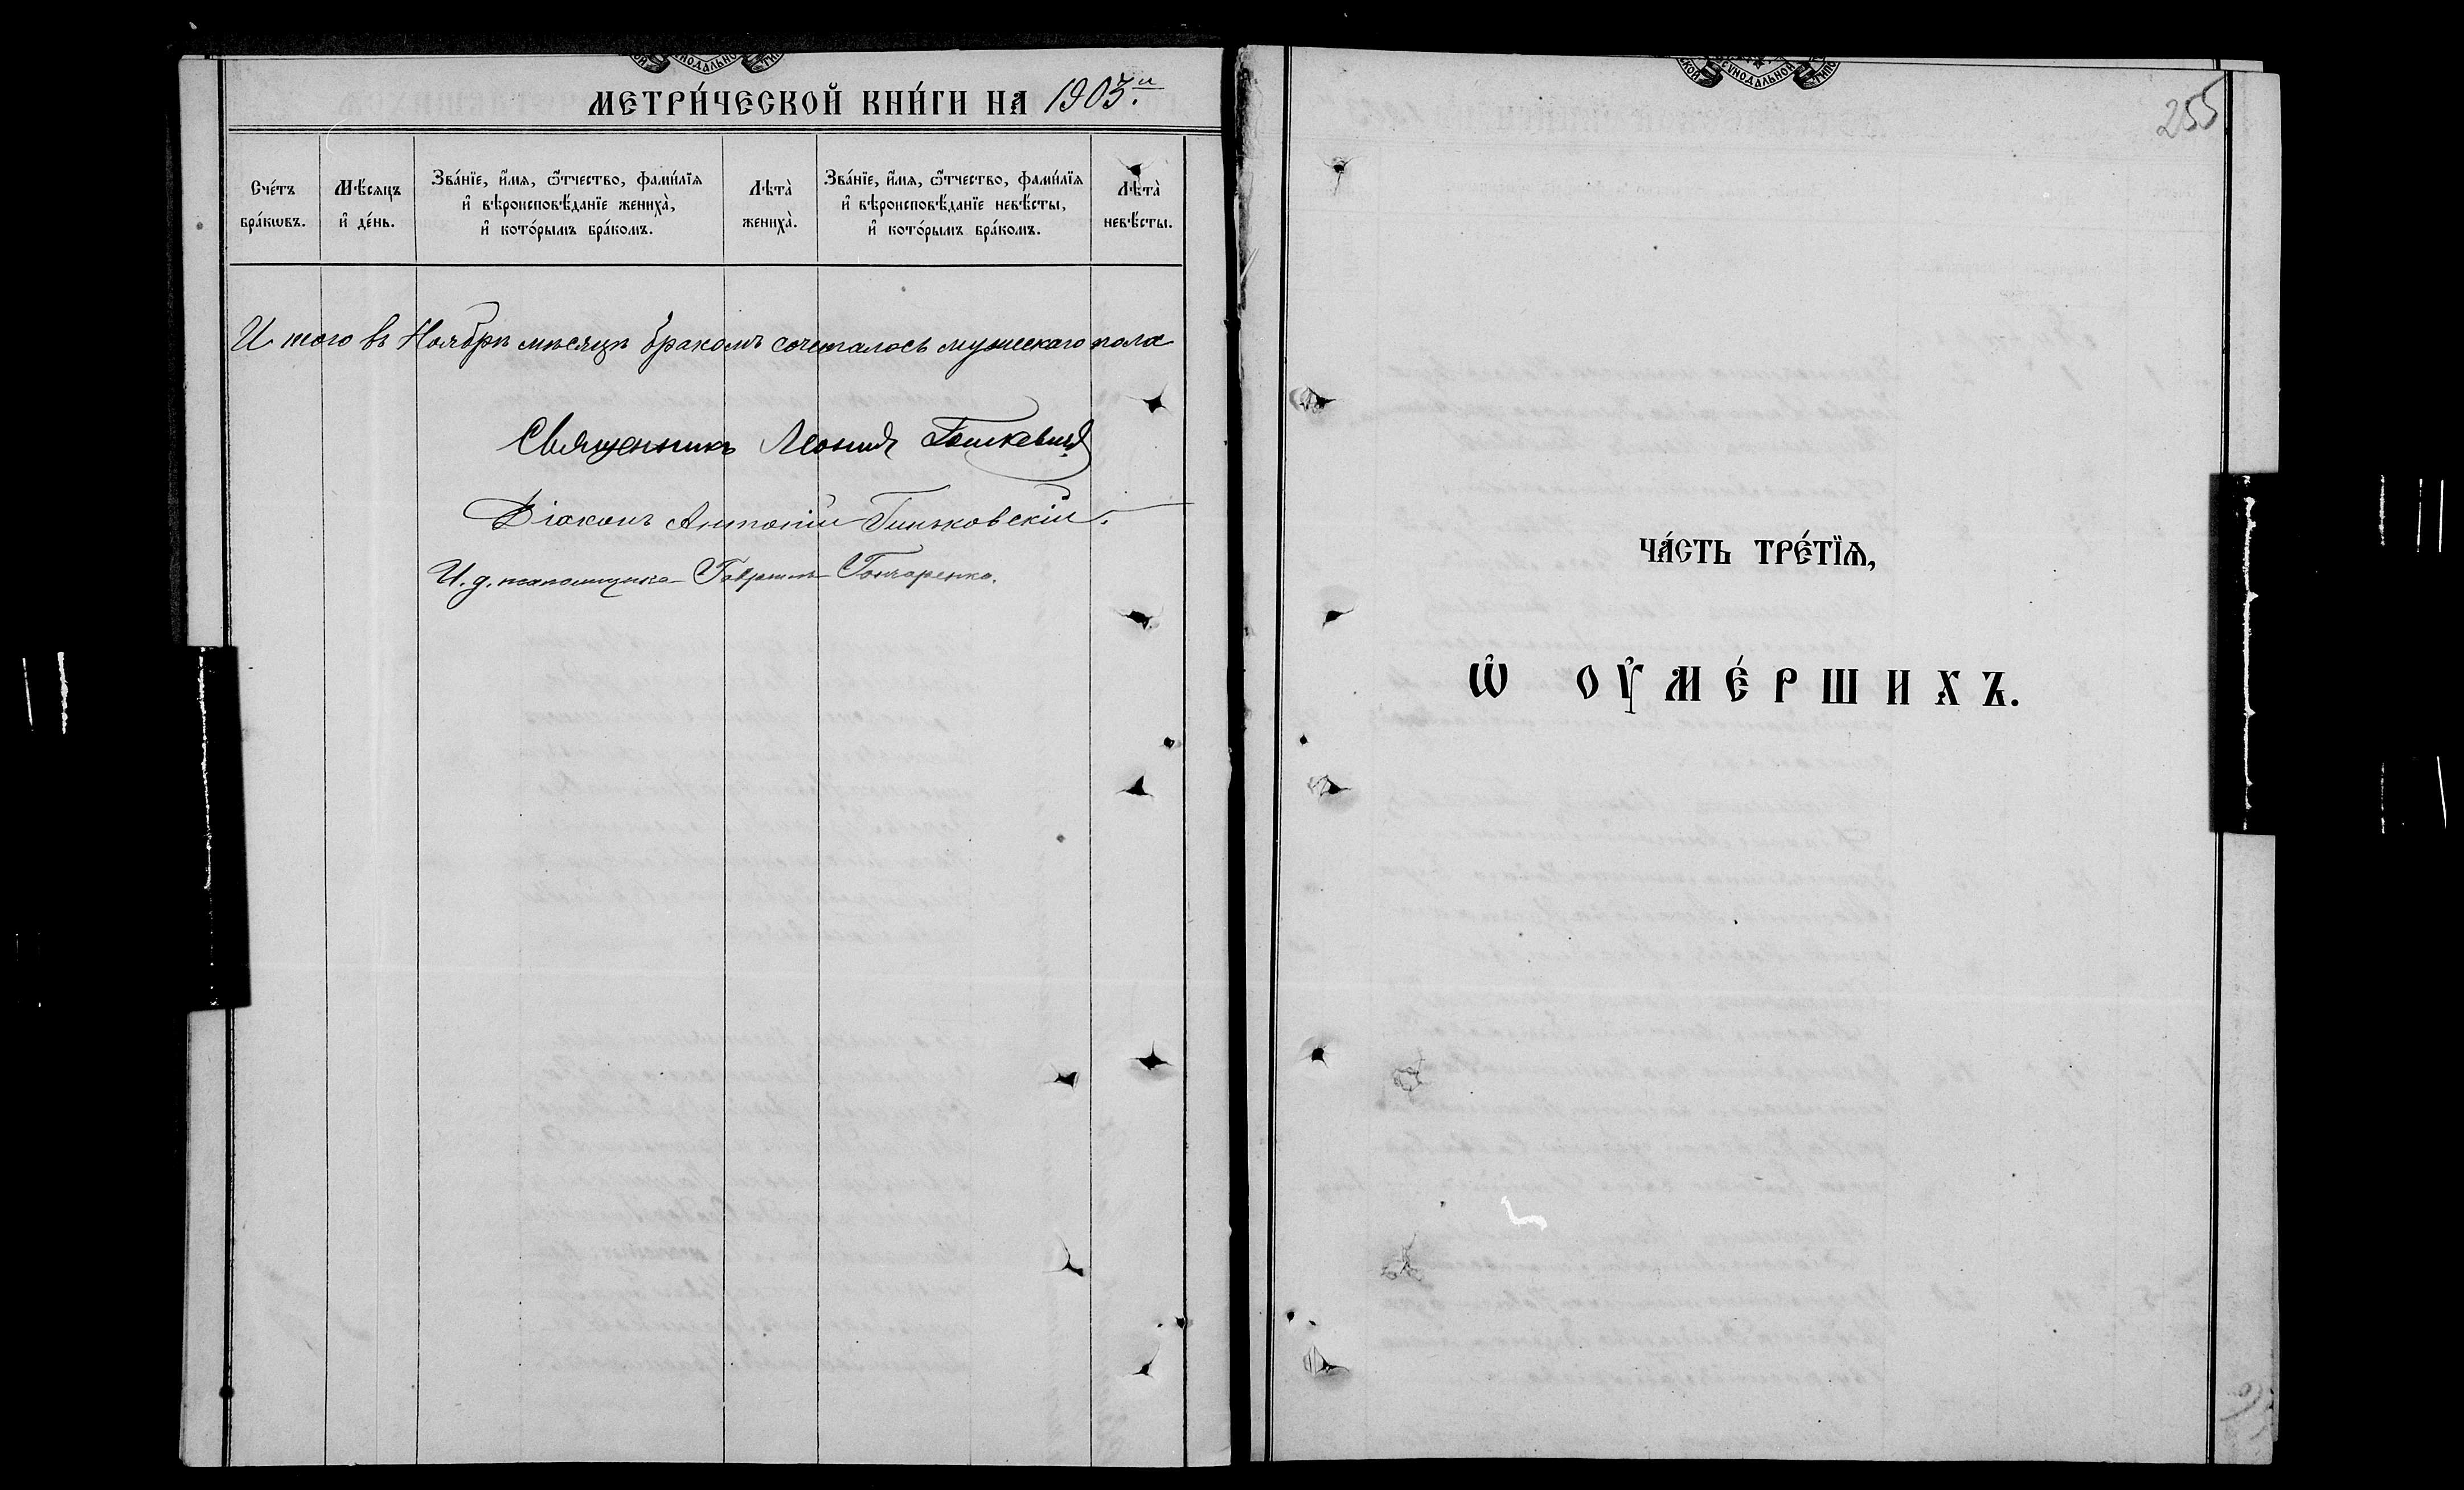 МЕТРИ́ЧЕСКОЙ КНИ́ГИ НА 1903.й
Сче́тъ бра́кѡвъ.
Мѣ́сяцъ и҆ де́нь.
Зва́нїе, и҆́мѧ, ѻ҆́тчество, фами́лїѧ
и҆ вѣроисповѣ́данїе жениха̀,
и҆ кото́рымъ бра́комъ.
Лѣта̀ жениха̀.
Зва́нїе, и҆́мѧ, ѻ҆́тчество, фами́лїѧ
и҆ вѣроисповѣ́данїе невѣ́сты,
и҆ кото́рымъ бра́комъ.
Лѣта̀ невѣ́сты.
И того въ Ноябрѣ мѣсяцѣ бракомъ сочеталось мужескаго пола
Священникъ Леонид
Діаконъ Антоній
И. д. псаломщика Гавріилъ Гончаренко.
255
ЧА́СТЬ ТРЕ́ТЇѦ,
Ѡ҆ ОУ҆МЕ́РШИХЪ.